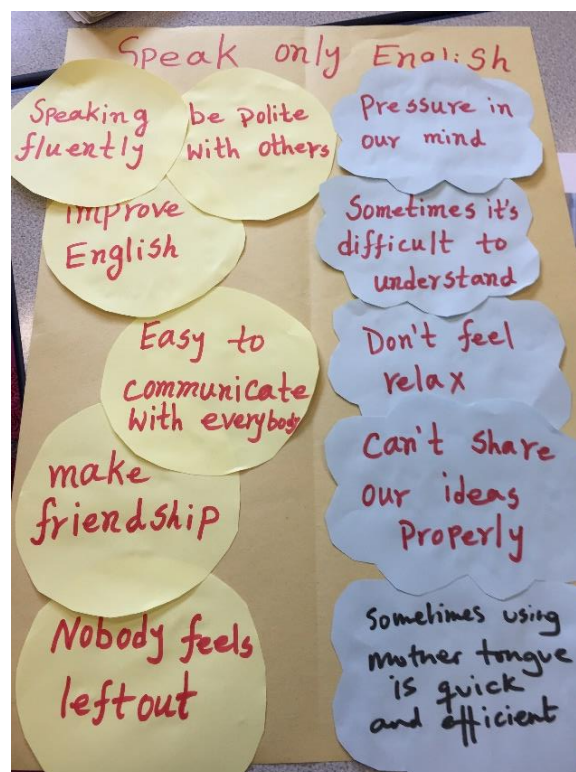 Speak only English
Speaking
fluently
be polite
with others
improve
English
Easy to
communicate
with everybody
make
friendship
Nobody feels
left out
Pressure in
our mind
Sometimes it's
difficult to
understand
Don't feel
relax
Can't share
our ideas
properly
Sometimes using
mother tongue
is quick
and efficient